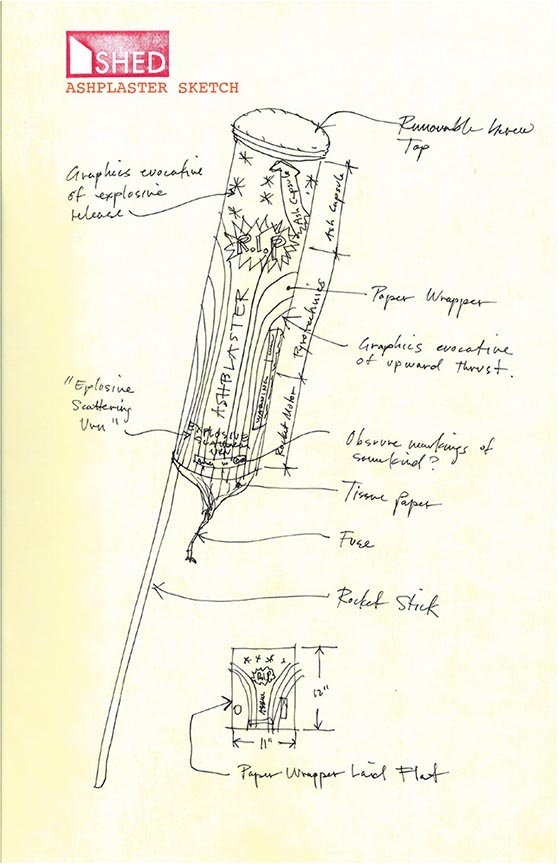 SHED
ASHPLASTER SKETCH
Removable Screw
Top
Graphics evocative
of explosive
release
Ash Capsule
Ash Capsule
R.I.P
Paper Wrapper
Pyrotechnics
ASHBLASTER
Graphics evocative
of upward thrust.
WARNING
"Eplosive
Scattering
Urn"
Rocket Motor
EXPLOSIVE
SCATTERING
URN
Obsure markings of
somekind?
Tissue Paper
Fuse
Rocket Stick
RIP
12"
11"
Paper Wrapper Laid Flat